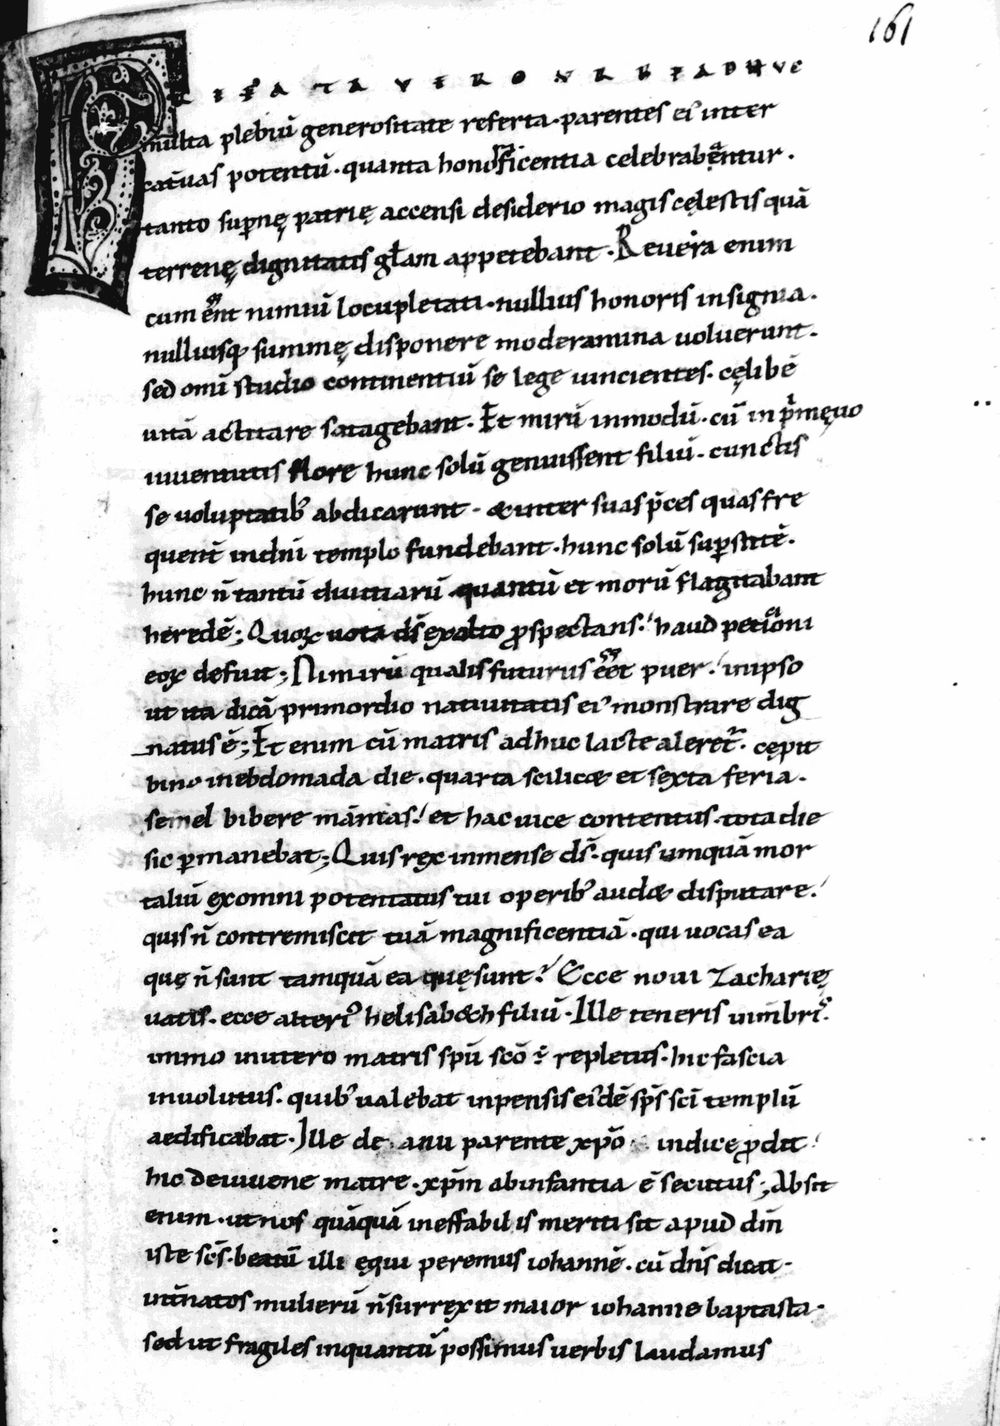 161
PREFATA VERO URBE ADHUC
multa plebiū generositate referta · parentes ei' inter
catuas potentū · quanta honorificentia celebrabantur ·
tanto supnę patrię accensi desiderio magis cęlestis quā
terrenę dignitatis głam appetebant · Revera enim
cum eent nimiū locupletati · nullius honoris insignia ·
nulliusq; summę disponere moderamina voluerunt ·
sed omī studio continentiū se lege vincientes · cęlibē
vitā actitare satagebant · Et mirū inmodū · cū in pmęvo
iuventutis flore hunc solū genuissent filiū · cunctis
se voluptatib; abdicarunt · & inter suas pces quas fre
quent indni templo fundebant · hunc solū supstitē ·
hunc n̄ tantū divitiarū quantū et morū flagitabant
heredē; Quoꝝ vota ds̄ ex alto ꝓspectans · haud petitioni
eoꝝ defuit; Nimirū qualis futurus eet puer · inipso
ut ita dicā primordio nativitatis ei' monstrare dig
natus ē; Et enim cū matris adhuc lacte aleret · cępit
bino inebdomada die · quarta scilicæ et sexta feria ·
semel bibere māmas · et hac vice contentus · tota die
sic pmanebat; Quis rex inmense ds̄ · quis umquā mor
taliū ex omni potentatus tui operib; audæ disputare ·
quis n̄ contremiscit tuā magnificentiā · qui vocas ea
quę n̄ sunt tamquā ea quę sunt? Ecce novi Zacharię
vatis · ecce alteri' helisab&h filiū · Ille teneris in mēbris
immo inutero matris spū scō ÷ repletus · hic fascia
involutus · quib; valebat inpensis eidē sps̄ scī templū
aedificabat · Ille de anu parente xpō indice ꝓdit
hic de iuvene matre · xpm̄ abinfantia ē secutus; Absit
enim · ut nos quāquā ineffabilis meriti sit apud dm̄
iste scs̄ · beatū illi ęqui peremus iohannē · cū dn̄s dicat ·
int̄ natos mulierū n̄ surrexit maior iohanne baptista ·
sed ut fragiles inquantū possimus verbis laudamus